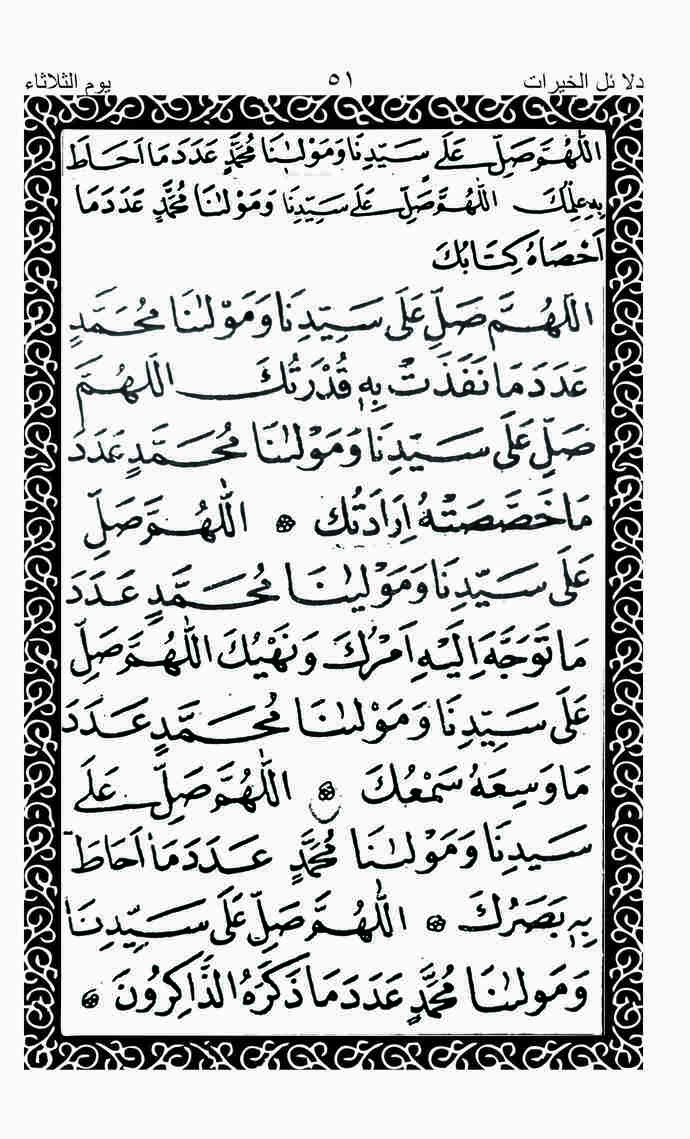 دلائل الخيرات ٥١ يوم الثلاثاء
اَللّٰهُمَّ صَلِّ عَلٰى سَيِّدِنَا وَمَوْلٰنَا مُحَمَّدٍ عَدَدَ مَا اَحَاطَ
بِهٖ عِلْمُكَ اَللّٰهُمَّ صَلِّ عَلٰى سَيِّدِنَا وَمَوْلٰنَا مُحَمَّدٍ عَدَدَ مَا
اَحْصَاهُ كِتَابُكَ
اَللّٰهُمَّ صَلِّ عَلٰى سَيِّدِنَا وَمَوْلٰنَا مُحَمَّدٍ
عَدَدَ مَا نَفَذَتْ بِهٖ قُدْرَتُكَ اَللّٰهُمَّ
صَلِّ عَلٰى سَيِّدِنَا وَمَوْلٰنَا مُحَمَّدٍ عَدَدَ
مَا خَصَّصَتْهُ اِرَادَتُكَ ۞ اَللّٰهُمَّ صَلِّ
عَلٰى سَيِّدِنَا وَمَوْلٰينَا مُحَمَّدٍ عَدَدَ
مَا تَوَجَّهَ اِلَيْهِ اَمْرُكَ وَنَهْيُكَ اَللّٰهُمَّ صَلِّ
عَلٰى سَيِّدِنَا وَمَوْلٰنَا مُحَمَّدٍ عَدَدَ
مَا وَسِعَهُ سَمْعُكَ ۞ اَللّٰهُمَّ صَلِّ عَلٰى
سَيِّدِنَا وَمَوْلٰنَا مُحَمَّدٍ عَدَدَ مَا اَحَاطَ
بِهٖ بَصَرُكَ ۞ اَللّٰهُمَّ صَلِّ عَلٰى سَيِّدِنَا
وَمَوْلٰنَا مُحَمَّدٍ عَدَدَ مَا ذَكَرَهُ الذَّاكِرُونَ ۞